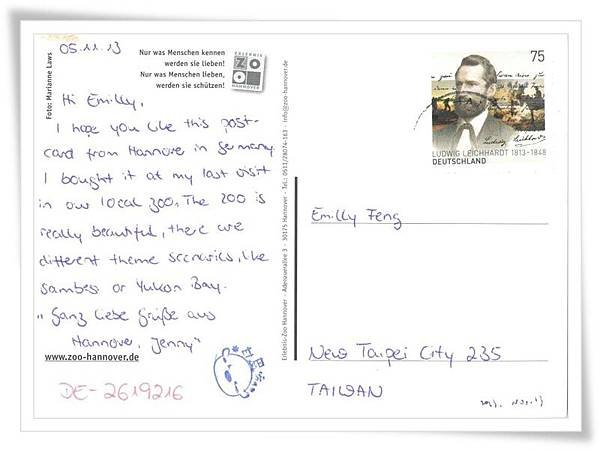 05.11.13
Nur was Menschen kennen
werden sie lieben!
Nur was Menschen lieben,
werden sie schützen!
ERLEBNIS
ZOO
HANNOVER
Foto: Marianne Laws
Hi Emilly,
I hope you like this post-
card from Hannover in Germany.
I bought it at my last visit
in our local zoo. The zoo is
really beautiful, there are
different theme scenaries, like
Sambesi or Yukon Bay.
"Ganz liebe Grüße aus
Hannover, Jenny"
www.zoo-hannover.de
DE-2619216
Erlebnis-Zoo Hannover · Adenauerallee 3 · 30175 Hannover · Tel.: 0511/28074-163 · info@zoo-hannover.de
75
LUDWIG LEICHHARDT 1813-1848
DEUTSCHLAND
Emilly Feng
New Taipei City 235
TAIWAN